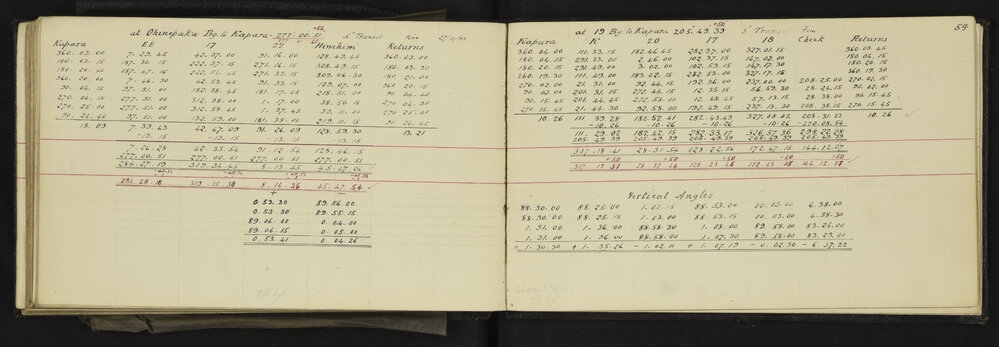 at Ohinepaka Bg. to Kapara 277.00.51 5" Transit
+50
Kapara EE 17 22 Returns
360.03.00 7.29.45 42.37.00 91.16.00 128.49.45 360.03.20
180.03.15 187.30.15 222.37.15 271.16.15 308.49.15 180.03.30
180.20.45 271.33.15 309.06.30 180.21.00
360.20.00 7.46.30 42.53.45 91.33.15 129.07.00 360.20.15
90.04.15 97.31.00 132.38.45 181.17.45 218.51.00 90.04.30
270.04.15 277.31.00 312.38.00 1.17.00 38.50.15 270.04.30
270.25.00 312.58.45 1.37.45 270.25.00
90.24.45 97.51.00 132.59.00 181.38.00 219.11.15 90.24.45
13.09 7.39.43 42.47.09 91.26.09 128.59.30 13.21
-13.15 -13.15 -13.15
7.26.28 42.33.54 91.12.54 128.46.15
277.00.51 277.00.51 277.00.51 277.00.51
284.27.19 319.34.45 8.13.45 45.47.06
284.28.18 319.35.38 8.14.36 45.47.54
+ –
0.53.30 89.56.00
0.53.30 89.55.15
89.06.00 0.04.00
89.06.15 0.05.00
0.53.41 0.04.26
54
at 19 Bg to Kapara 205.49.39 5" Transit
+50
Kapara K' 20 17 18 Check Returns
360.04.00 111.33.15 182.46.45 282.37.00 327.01.15 360.03.45
180.04.15 291.33.00 2.46.00 102.37.15 147.02.00 180.04.15
180.20.15 291.49.00 3.02.00 102.53.15 147.17.30 180.20.15
360.19.30 111.49.00 183.02.15 282.53.00 327.17.15 360.19.30
90.02.00 21.31.00 92.44.15 192.36.00 237.00.00 208.25.00 270.02.15
90.02.00 201.31.15 272.44.15 12.35.15 56.59.30 28.24.15 90.02.00
90.15.45 201.44.45 272.58.00 12.48.45 57.13.15 28.38.00 90.15.45
270.15.45 21.44.30 92.58.00 192.49.15 237.12.30 208.38.15 270.15.45
10.26 111.39.28 182.52.41 282.43.43 327.08.02 208.31.22 10.26
-10.26 -10.26 -10.26 -270.08.54
111.29.02 182.42.15 282.33.17 326.57.36 298.22.28
205.49.39 205.49.39 205.49.39 205.49.39 205.49.39
317.18.41 28.31.54 128.22.56 172.47.15 144.12.07
+50 +50 +50 +50 +50
28.32.44 128.23.46 172.48.05 144.12.57
Vertical Angles
88.30.00 88.25.00 1.02.15 88.53.00 00.03.00 6.38.00
88.30.00 88.25.15 1.03.00 88.53.15 00.03.00 6.38.30
1.31.00 1.36.00 88.58.30 1.08.00 89.58.00 83.24.00
1.31.00 1.36.00 88.58.30 1.07.30 89.58.00 83.23.00
+ 1.30.30 + 1.35.26 – 1.02.11 + 1.07.19 – 0.02.30 – 6.37.22